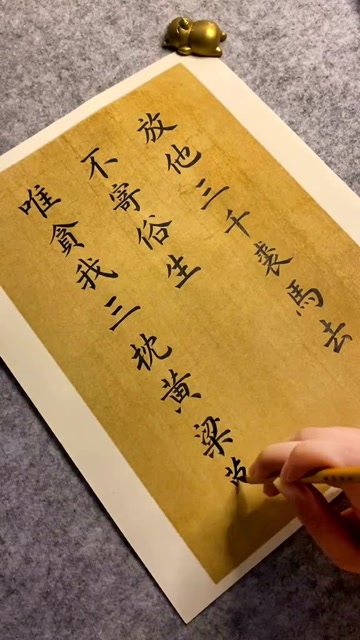 放他三千裘馬去
不寄俗生
唯貪我三枕黄梁